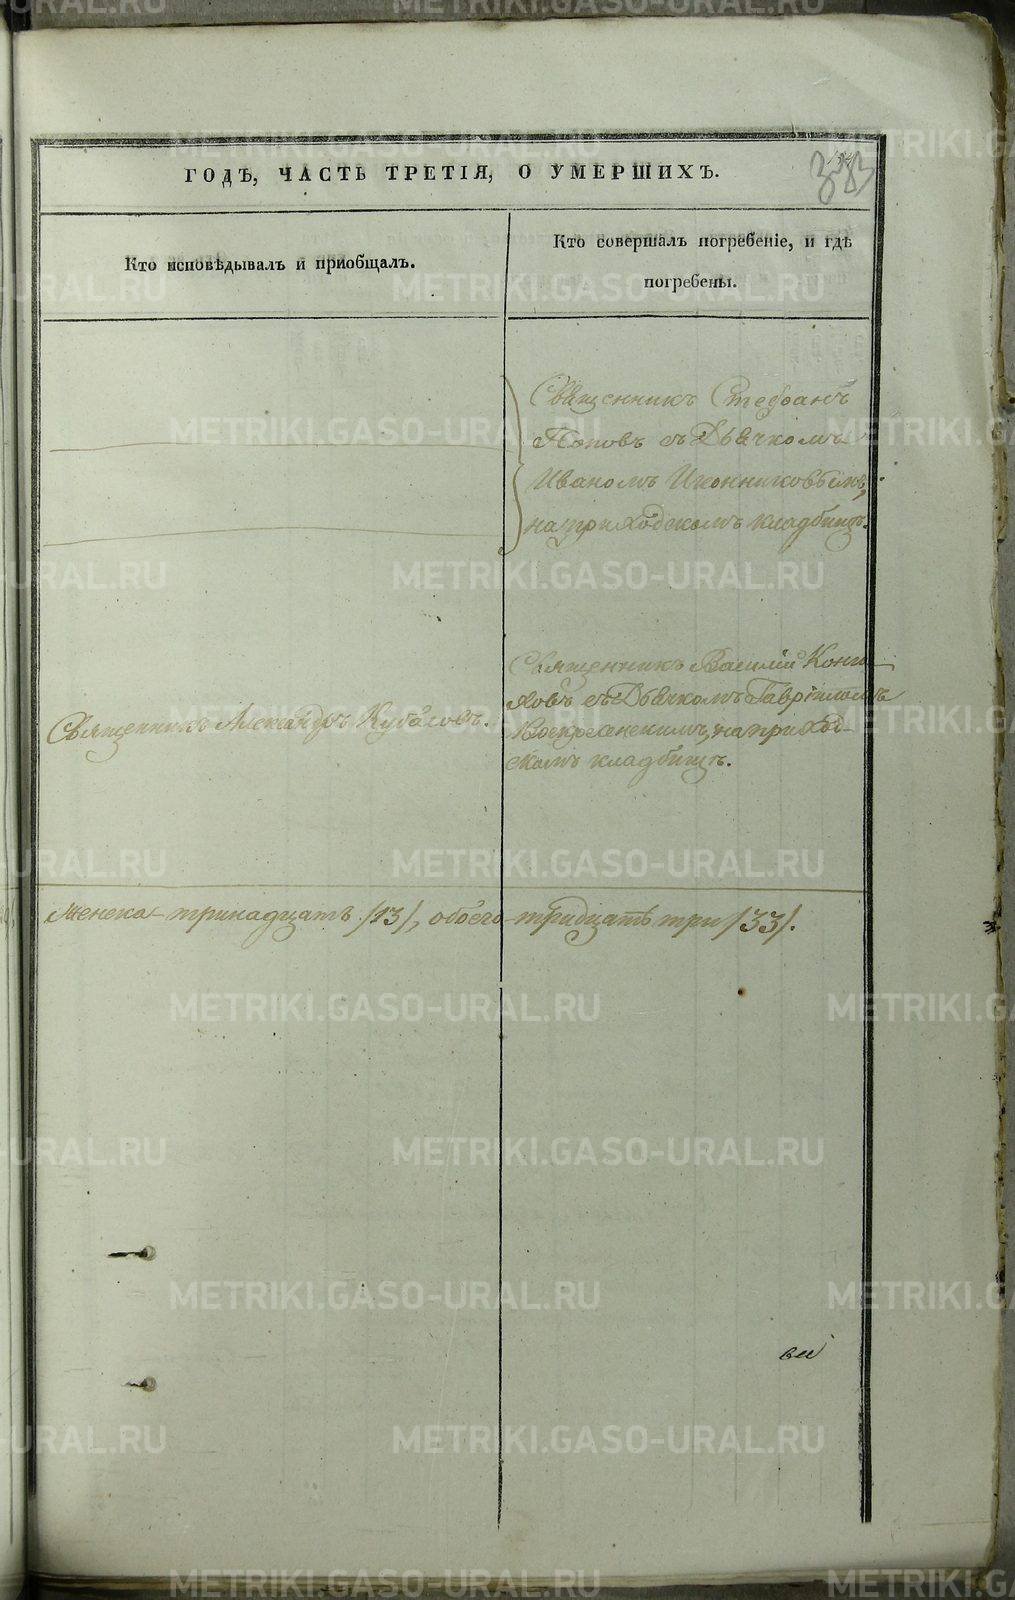 383
ГОДЪ, ЧАСТЬ ТРЕТІЯ, О УМЕРШИХЪ.
Кто исповѣдывалъ и приобщалъ.
Кто совершалъ погребеніе, и гдѣ
погребены.
Священникъ Стефанъ
Поповъ съ Дьячкомъ
Иваномъ Иконниковымъ,
на приходскомъ кладбищѣ.
Священникъ Александръ Кубасовъ.
Священникъ Василій
ховъ съ Дьячкомъ Гавріиломъ
Воскресенскимъ, на приход-
скомъ кладбищѣ.
женска тринадцать /13/, обоего тридцать три /33/.
METRIKI.GASO-URAL.RU